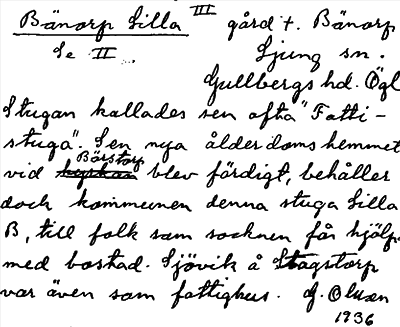 Bänorp Lilla III gård †. Bänorp
Se II Ljung sn.
Gullbergs hd. Ögl
Stugan kallades sen ofta "Fatti-
stuga". Sen nya ålderdomshemmet
vid Börstorp blev färdigt, behåller
dock kommunen denna stuga Lilla
B, till folk som socknen får hjälp
med bostad. Sjövik å Stagstorp
var även som fattighus. G. Olsén
1936